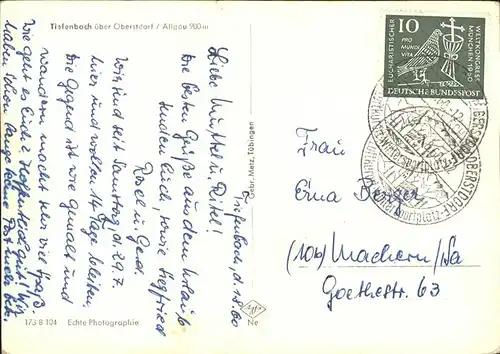 Tiefenbach über Oberstdorf / Allgäu 900 m
Tiefenbach, d.
Liebe Mutti u. Vati!
Die besten Grüße aus dem Urlaub
senden Euch, sowie Siegfried
Rosel u. Gerd.
Wir sind seit Samstag, d. 29.7.
hier und wollen 14 Tage bleiben.
Die Gegend ist wie gemalt und
wandern macht sehr viel Spaß.
Wie geht es Euch? Hoffentlich gut! Wir
haben schon lange keine Post mehr
173 B 104 Echte Photographie
Gebr. Metz, Tübingen
Agfa
Ne
10
PRO MUNDI VITA
EUCHARISTISCHER
WELTKONGRESS
MÜNCHEN 1960
DEUTSCHE BUNDESPOST
OBERSTDORF
Frau
Erna Berger
(10b) Machern/Sa
Goethestr. 63